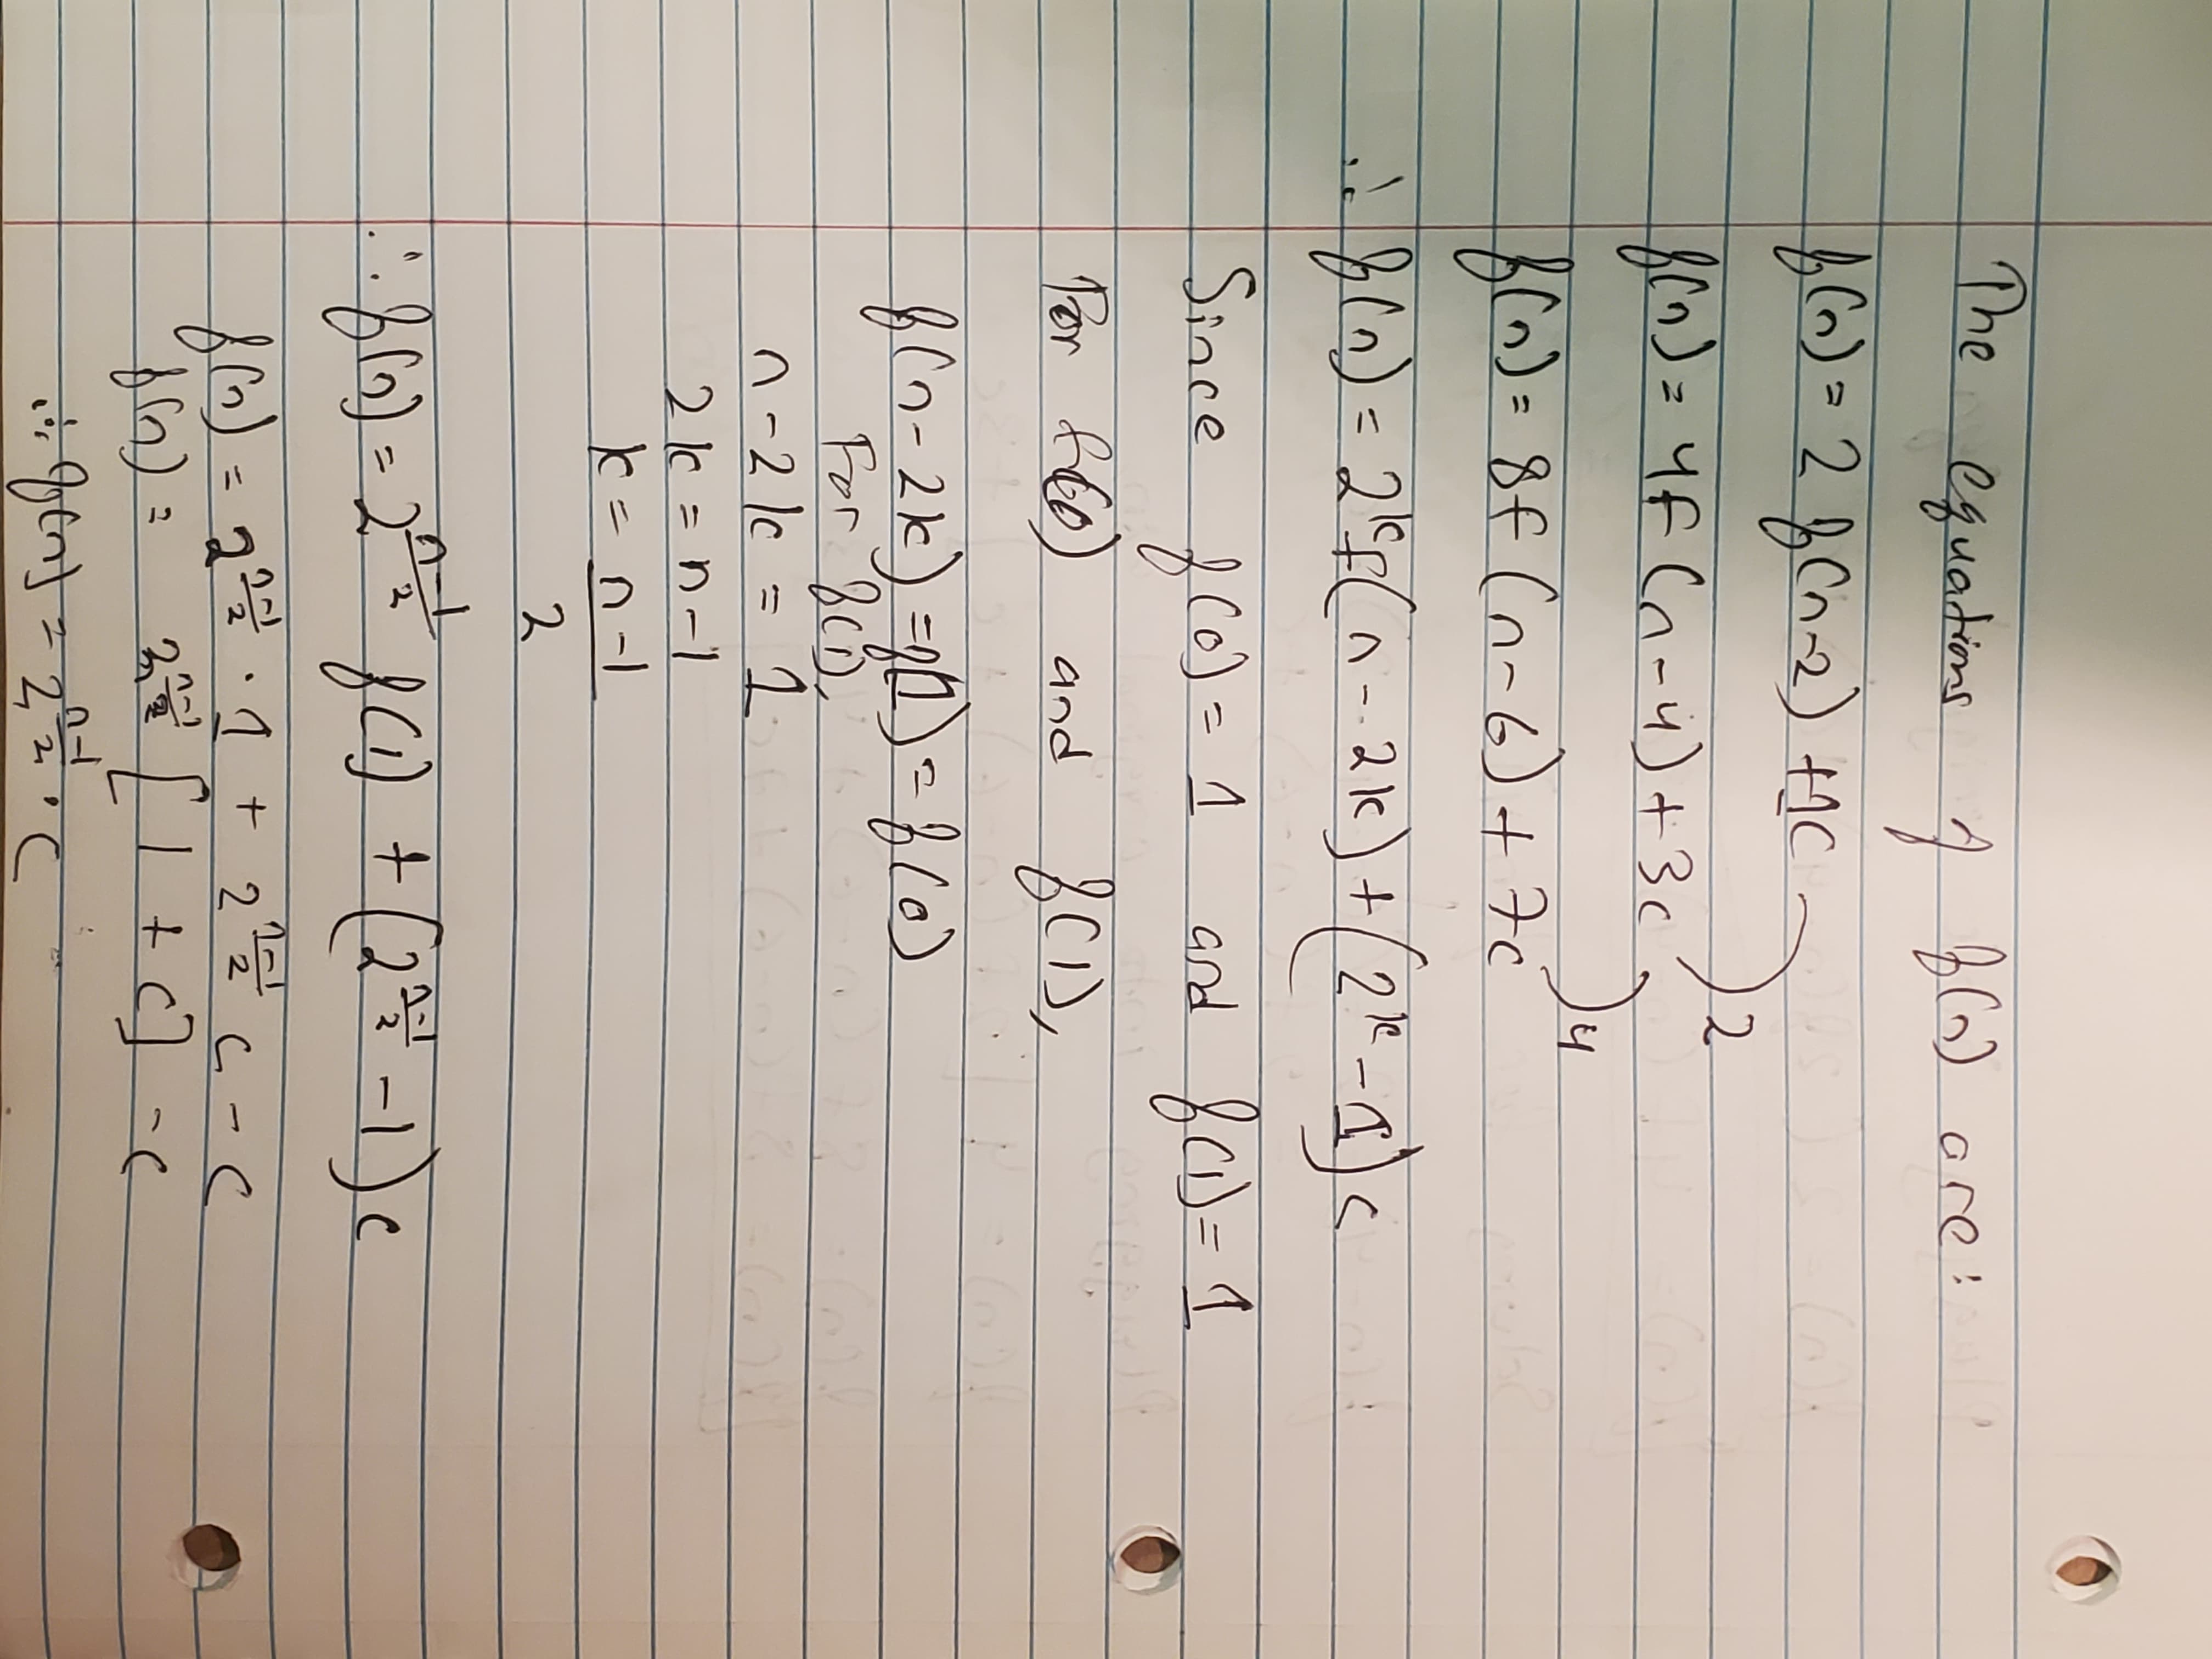 The equations of f(n) are:
f(n) = 2 f(n-2) + 1c
f(n) = 4f (n-4) + 3c ) 2
f(n) = 8f (n-6) + 7c ) 4
∴ f(n) = 2^k f(n-2k) + (2^k - 1) c
Since f(0) = 1 and f(1) = 1
For f(0) and f(1),
f(n-2k) = f(1) = f(0)
For f(1),
n-2k = 1
2k = n-1
k = (n-1)/2
∴ f(n) = 2^((n-1)/2) f(1) + (2^((n-1)/2) - 1) c
f(n) = 2^((n-1)/2) · 1 + 2^((n-1)/2) c - c
f(n) = 2^((n-1)/2) [1 + c] - c
∴ f(n) = 2^((n-1)/2) · c